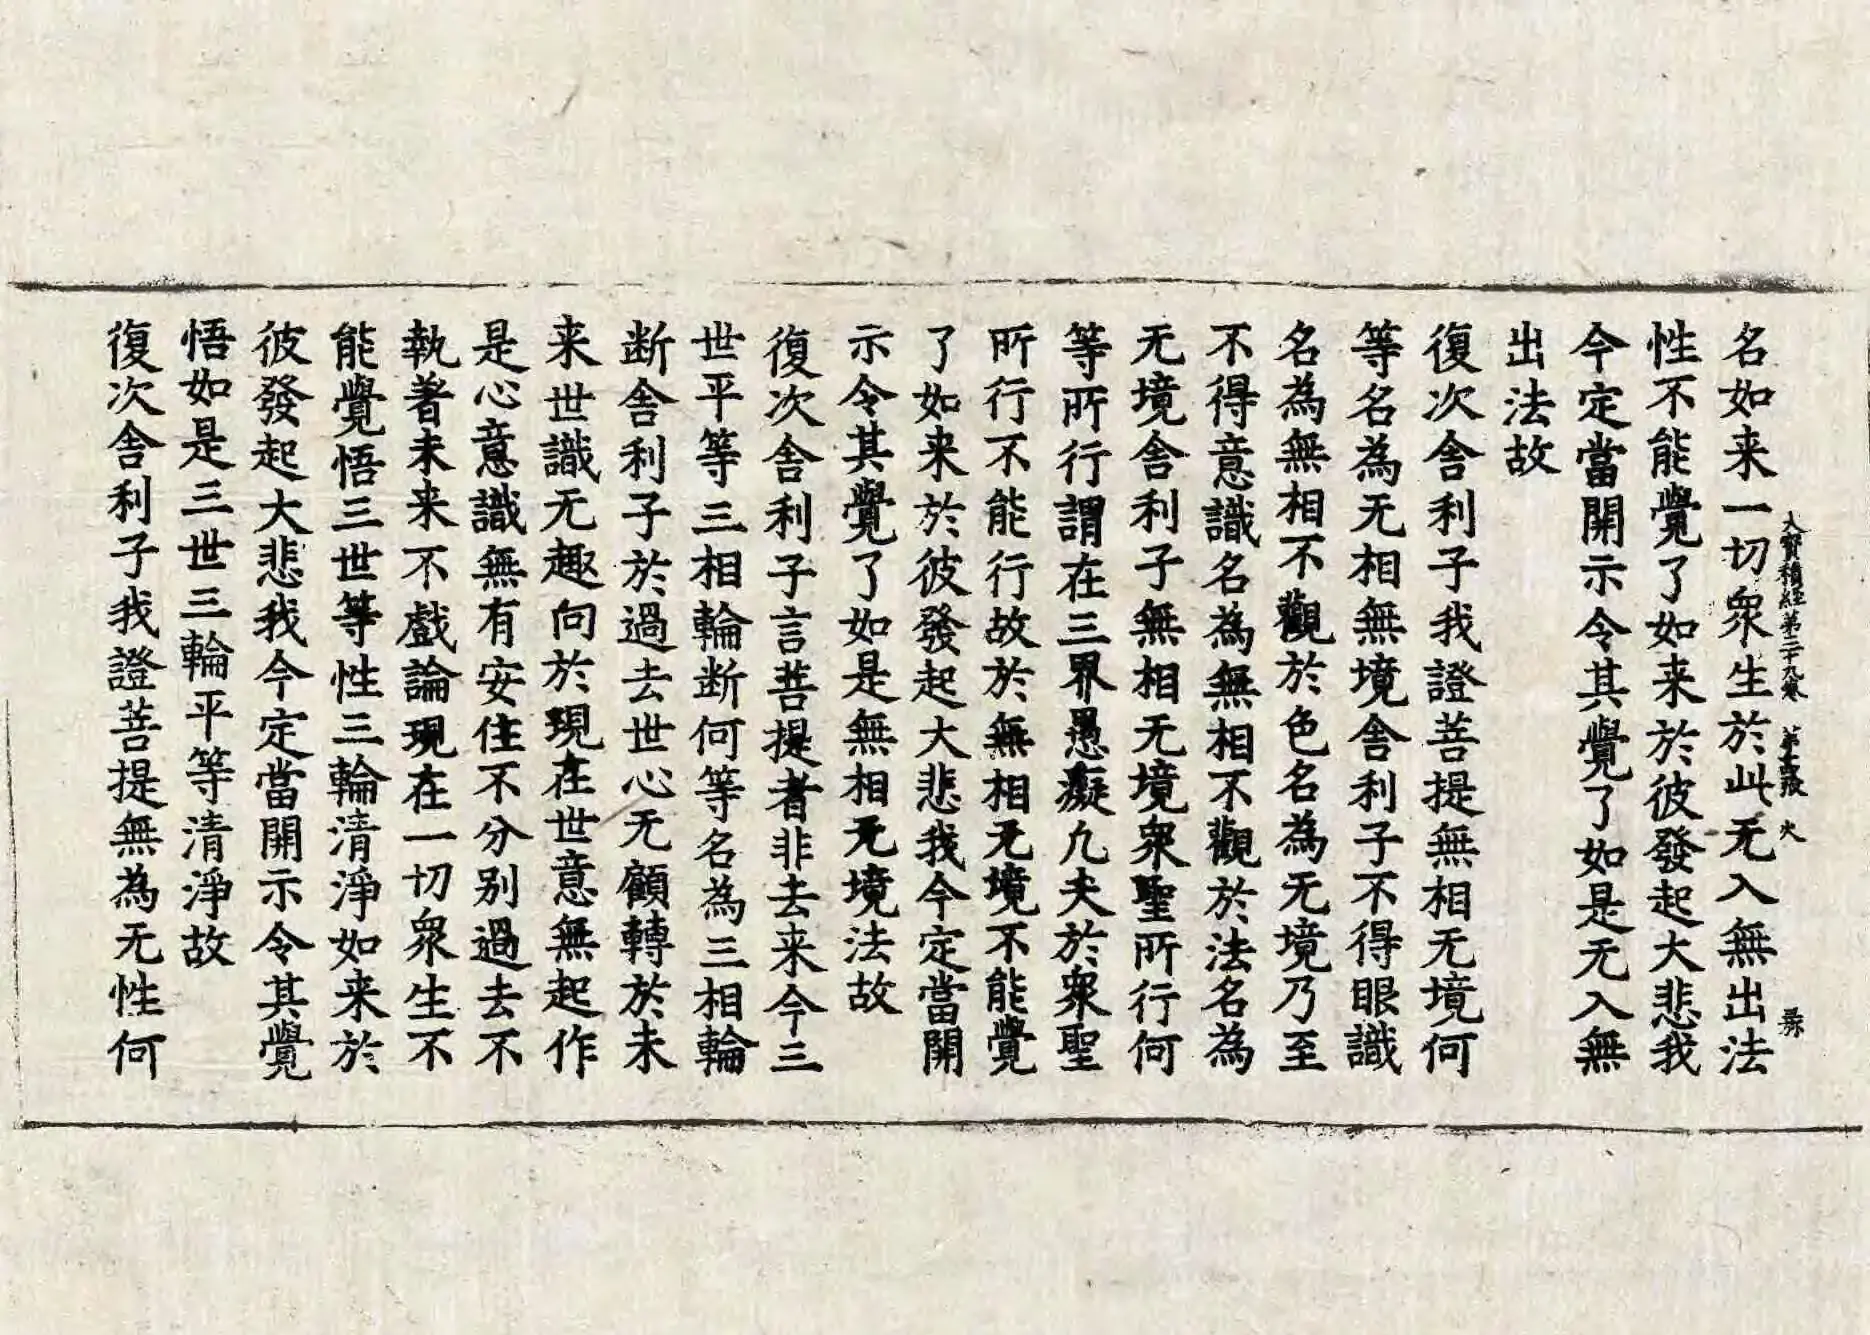 大寶積經第三十九卷 第十張 火
名如来一切衆生於此无入無出法
性不能覺了如来於彼發起大悲我
今定當開示令其覺了如是无入無
出法故
復次舎利子我證菩提無相无境何
等名為无相無境舎利子不得眼識
名為無相不觀於色名為无境乃至
不得意識名為無相不觀於法名為
无境舎利子無相无境衆聖所行何
等所行謂在三界愚癡九夫於衆聖
所行不能行故於無相无境不能覺
了如来於彼發起大悲我今定當開
示令其覺了如是無相无境法故
復次舎利子言菩提者非去来今三
世平等三相輪断何等名為三相輪
断舎利子於過去世心无顧轉於未
来世識无趣向於現在世意無起作
是心意識無有安住不分别過去不
執著未来不戲論現在一切衆生不
能覺悟三世等性三輪清淨如来於
彼發起大悲我今定當開示令其覺
悟如是三世三輪平等清淨故
復次舎利子我證菩提無為无性何